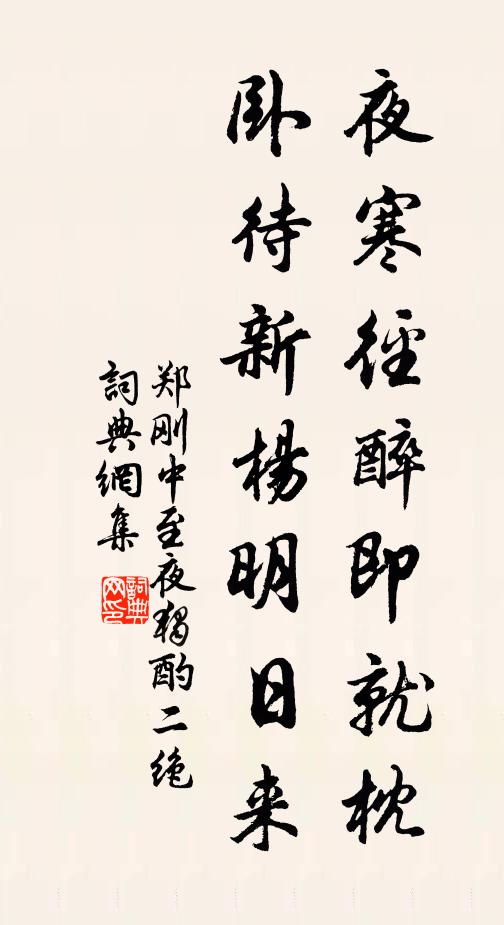 夜寒径醉即就枕
卧待新楊明日来
郑刚中至夜獨酌二绝
詞典網集
詞典網印